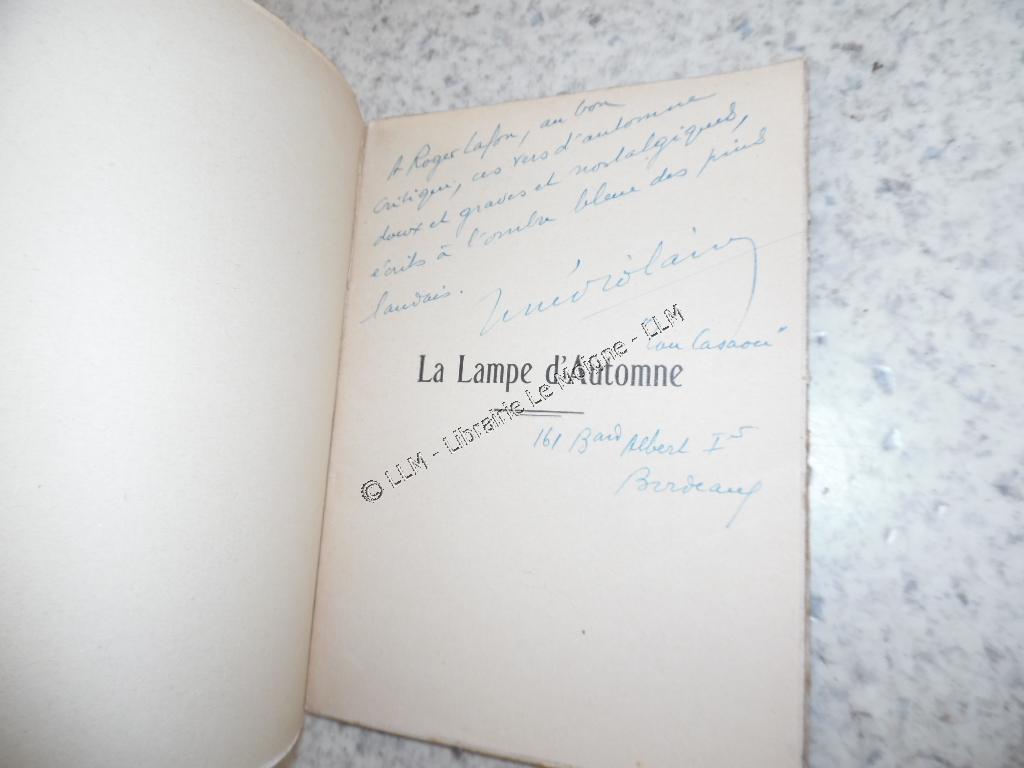 A Roger Lafon, au bon
critique, ces vers d'automne
doux et graves et nostalgiques,
écrits à l'ombre bleue des pins
landais.
La Lampe d'Automne
© LLM - Librairie Le Moigne - LLM
161 Bard Albert Ier
Bordeaux